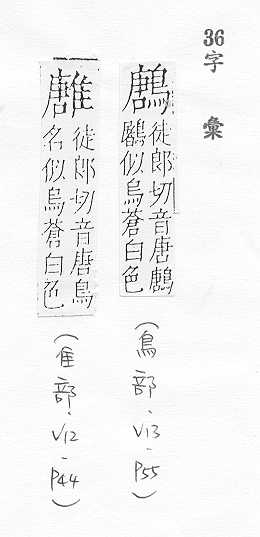 36 字彙
鶶
徒郎切音唐鶶
鷵似烏蒼白色
(鳥部.V13-P55)
徒郎切音唐鳥
名似烏蒼白色
(隹部.V12-P44)